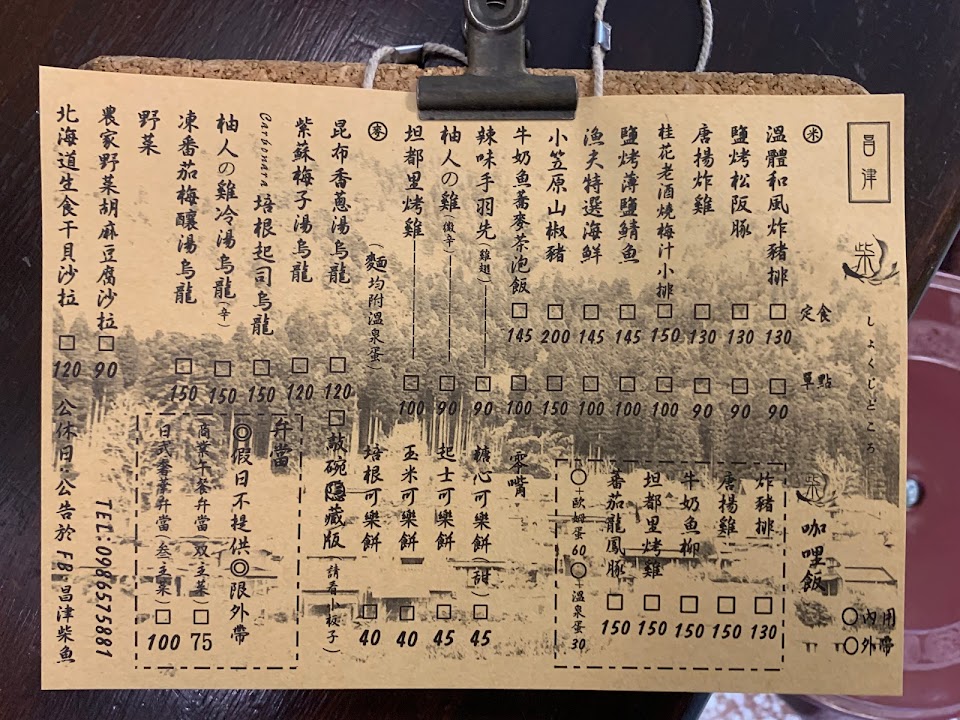 昌津
柴
しょくじどころ
○內用
○外帶
米
定食
單點
溫體和風炸豬排 □130 □90
鹽烤松阪豚 □130 □90
唐揚炸雞 □130 □90
桂花老酒燒梅汁小排 □150 □100
鹽烤薄鹽鯖魚 □145 □100
漁夫特選海鮮 □145 □100
小笠原山椒豬 □200 □150
牛奶魚蕎麥茶泡飯 □145 □100
辣味手羽先(雞翅) □90
柚人の雞(微辛) □90
坦都里烤雞 □100
柴 咖哩飯
炸豬排 □130
唐揚雞 □150
牛奶魚柳 □150
坦都里烤雞 □150
番茄龍鳳豚 □150
○+歐姆蛋60○+溫泉蛋30
零嘴
糖心可樂餅(甜) □45
起士可樂餅 □45
玉米可樂餅 □40
培根可樂餅 □40
麥
(麵均附溫泉蛋)
昆布香蔥湯烏龍 □120
紫蘇梅子湯烏龍 □120
Carbonara 培根起司烏龍 □150
柚人の雞冷湯烏龍(辛) □150
凍番茄梅釀湯烏龍 □150
□敲碗隱藏版(請看小板子)
野菜
農家野菜胡麻豆腐沙拉 □90
北海道生食干貝沙拉 □120
弁當
◎假日不提供◎限外帶
商業午餐弁當(双主菜) □75
日式番菜弁當(叁主菜) □100
TEL:0986575881
公休日:公告於FB.昌津柴魚